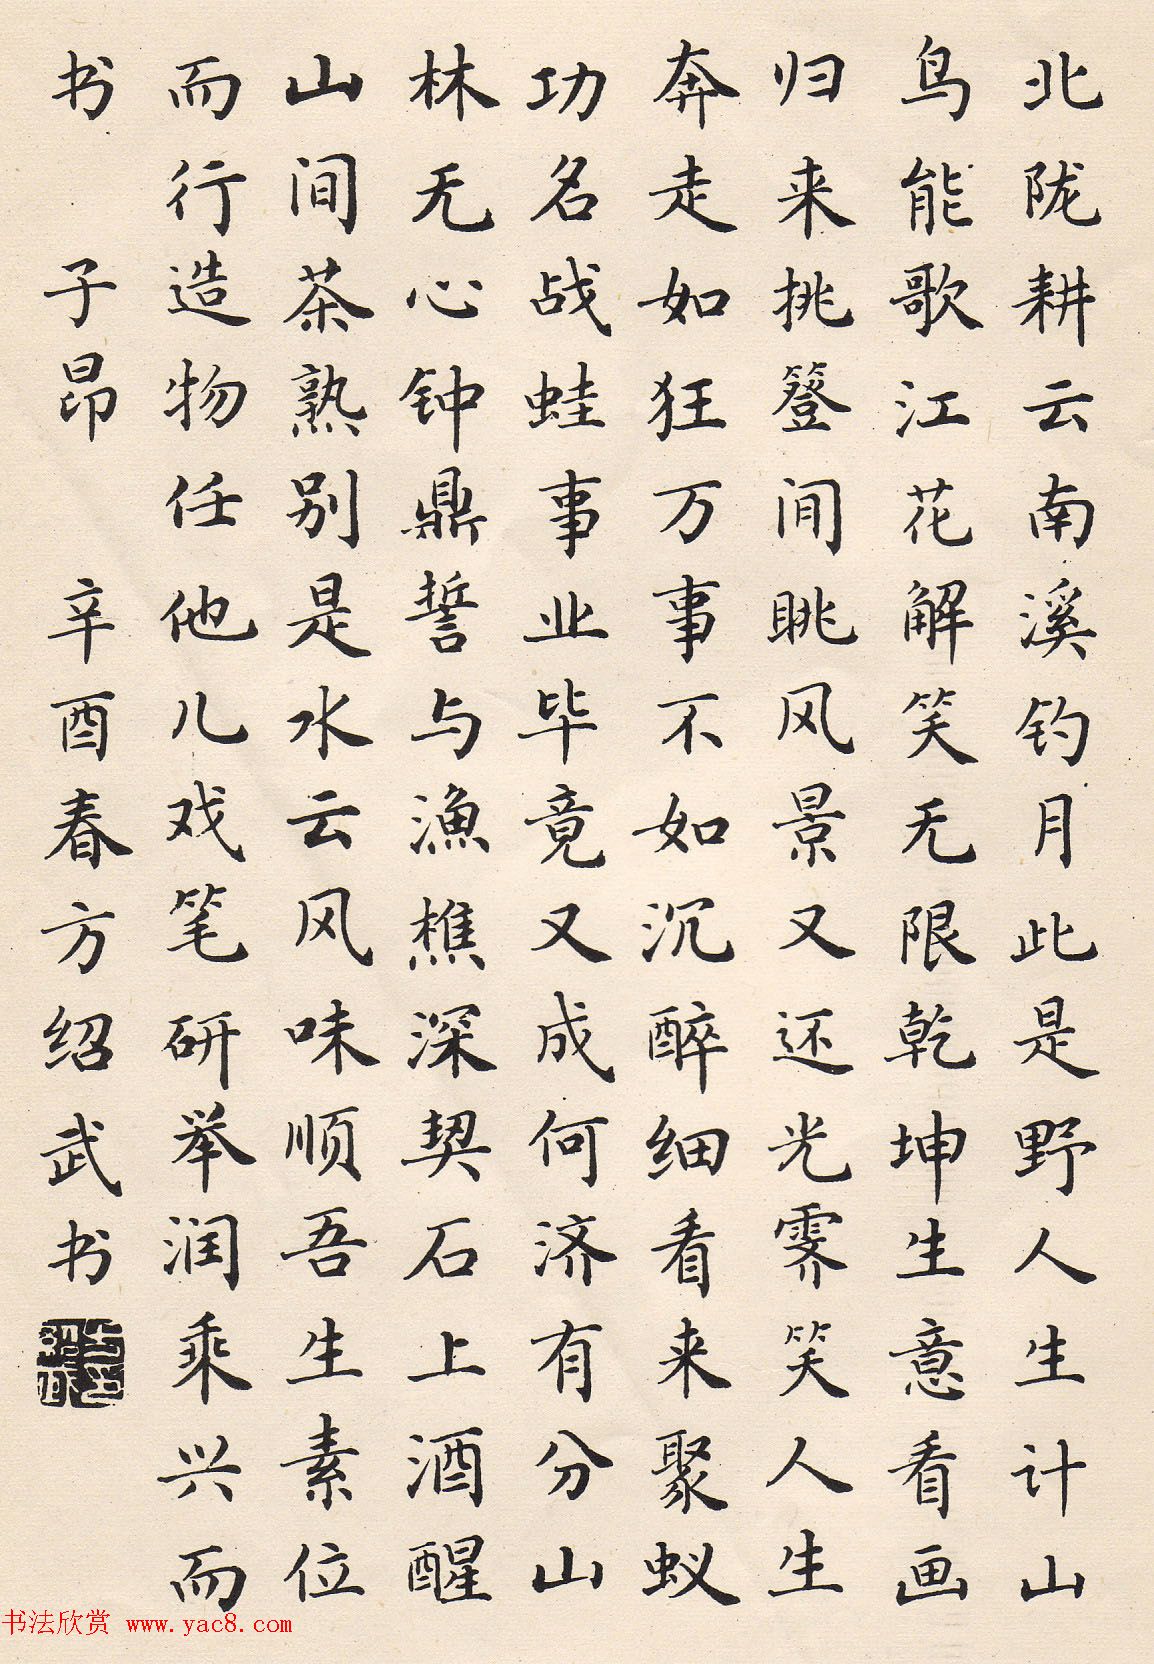 北陇耕云南溪钓月此是野人生计山
鸟能歌江花解笑无限乾坤生意看画
归来挑簦闲眺风景又还光霁笑人生
奔走如狂万事不如沉醉细看来聚蚁
功名战蛙事业毕竟又成何济有分山
林无心钟鼎誓与渔樵深契石上酒醒
山间茶熟别是水云风味顺吾生素位
而行造物任他儿戏笔研举润乘兴而
书 子昂 辛酉春方绍武书
书法欣赏 www.yac8.com